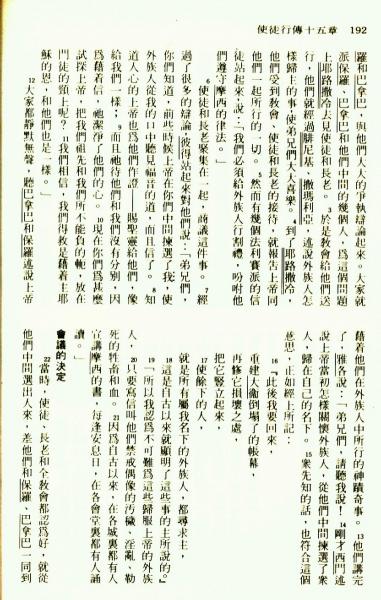 使徒行傳十五章　192
羅和巴拿巴，與他們大大的爭執辯論起來。大家就
派保羅、巴拿巴和他們中間的幾個人，為這個問題
上耶路撒冷去見使徒和長老。3於是教會給他們送
行，他們就經過腓尼基、撒瑪利亞，述說外族人怎
樣歸主的事，使弟兄們大大喜樂。4到了耶路撒冷，
他們受到教會、使徒和長老的接待，就報告上帝同
他們一起所行的一切。5然而有幾個法利賽派的信
徒站起來，說：「我們必須給外族人行割禮，吩咐他
們遵守摩西的律法。」
6使徒和長老聚集在一起，商議這件事。7經
過了很多的辯論，彼得站起來對他們說：「弟兄們，
你們知道，前些時候上帝在你們中間揀選了我，使
外族人從我的口中聽見福音的道，而且信了。8知
道人心的上帝也為他們作證——賜聖靈給他們，像
給我們一樣；9而且祂待他們和我們沒有分別，因
為藉着信，祂潔淨了他們的心。10現在你們為甚麼
試探上帝，把我們祖先和我們所不能負的軛，放在
門徒的頸上呢？11我們相信，我們得救是藉着主耶
穌的恩，和他們也是一樣。」
12大家都靜默無聲，聽巴拿巴和保羅述說上帝
藉着他們在外族人中所行的神蹟奇事。13他們講完
了，雅各說：「弟兄們，請聽我說！14剛才西門述
說上帝當初怎樣關懷外族人，從他們中間揀選了眾
人，歸在自己的名下。15眾先知的話，也符合這個
意思，正如經上所記：
16『此後我要回來，
重建大衞倒塌了的帳幕，
再修它損壞之處，
把它豎立起來，
17使餘下的人，
就是所有屬我名下的外族人，都尋求主，
18這是自古以來就顯明了這些事的主所說的。』
19「所以我認為不可難為這些歸服上帝的外族
人，20只要寫信叫他們禁戒偶像的污穢、淫亂、勒
死的牲畜和血。21因為自古以來，在各城裏都有人
宣講摩西的書，每逢安息日，在各會堂裏都有人誦
讀。」
會議的決定
22當時，使徒、長老和全教會都認為好，就從
他們中間選出人來，差他們和保羅、巴拿巴一同到